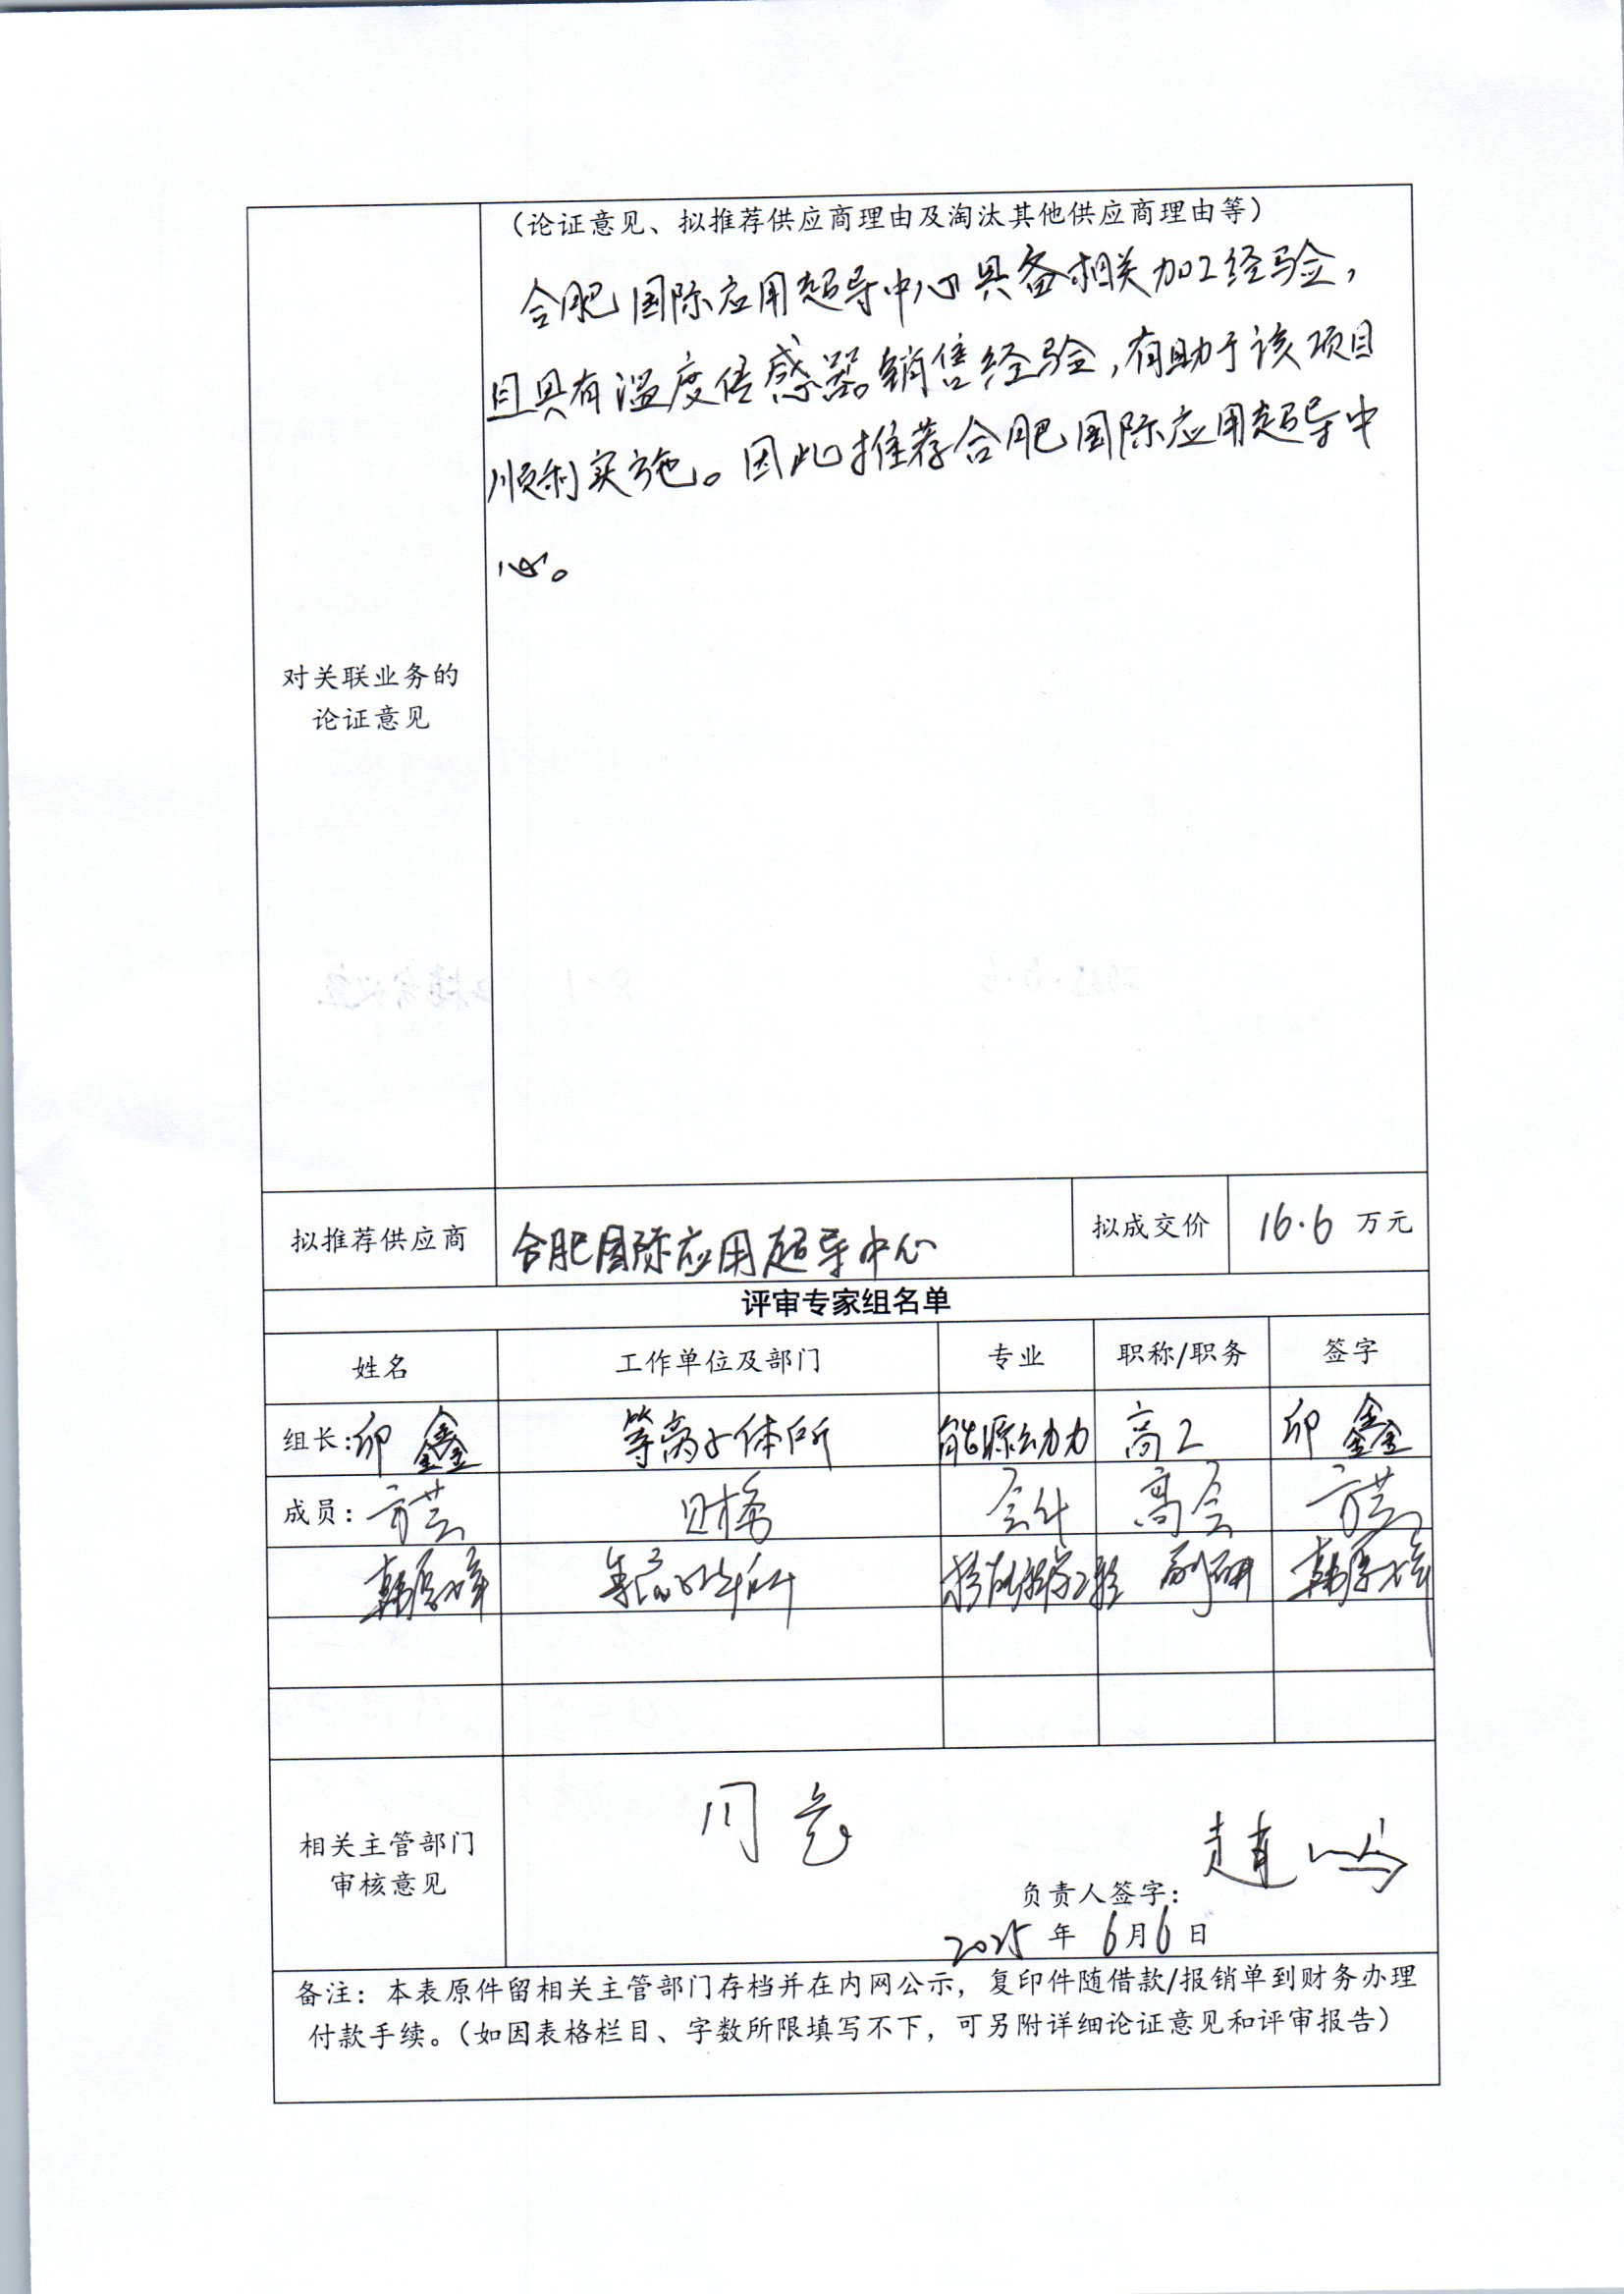 (论证意见、拟推荐供应商理由及淘汰其他供应商理由等)
合肥国际应用超导中心具备相关加工经验，
且具有温度传感器销售经验，有助于该项目
顺利实施。因此推荐合肥国际应用超导中
心。
对关联业务的
论证意见
拟推荐供应商 合肥国际应用超导中心 拟成交价 16.6 万元
评审专家组名单
姓名 工作单位及部门 专业 职称/职务 签字
组长：印鑫 等离子体所 能源动力 高工 印鑫
成员：方芸 财务 会计 高会 方芸
副研
相关主管部门
审核意见
同意
负责人签字：
2025 年 6 月 6 日
备注：本表原件留相关主管部门存档并在内网公示，复印件随借款/报销单到财务办理
付款手续。（如因表格栏目、字数所限填写不下，可另附详细论证意见和评审报告）